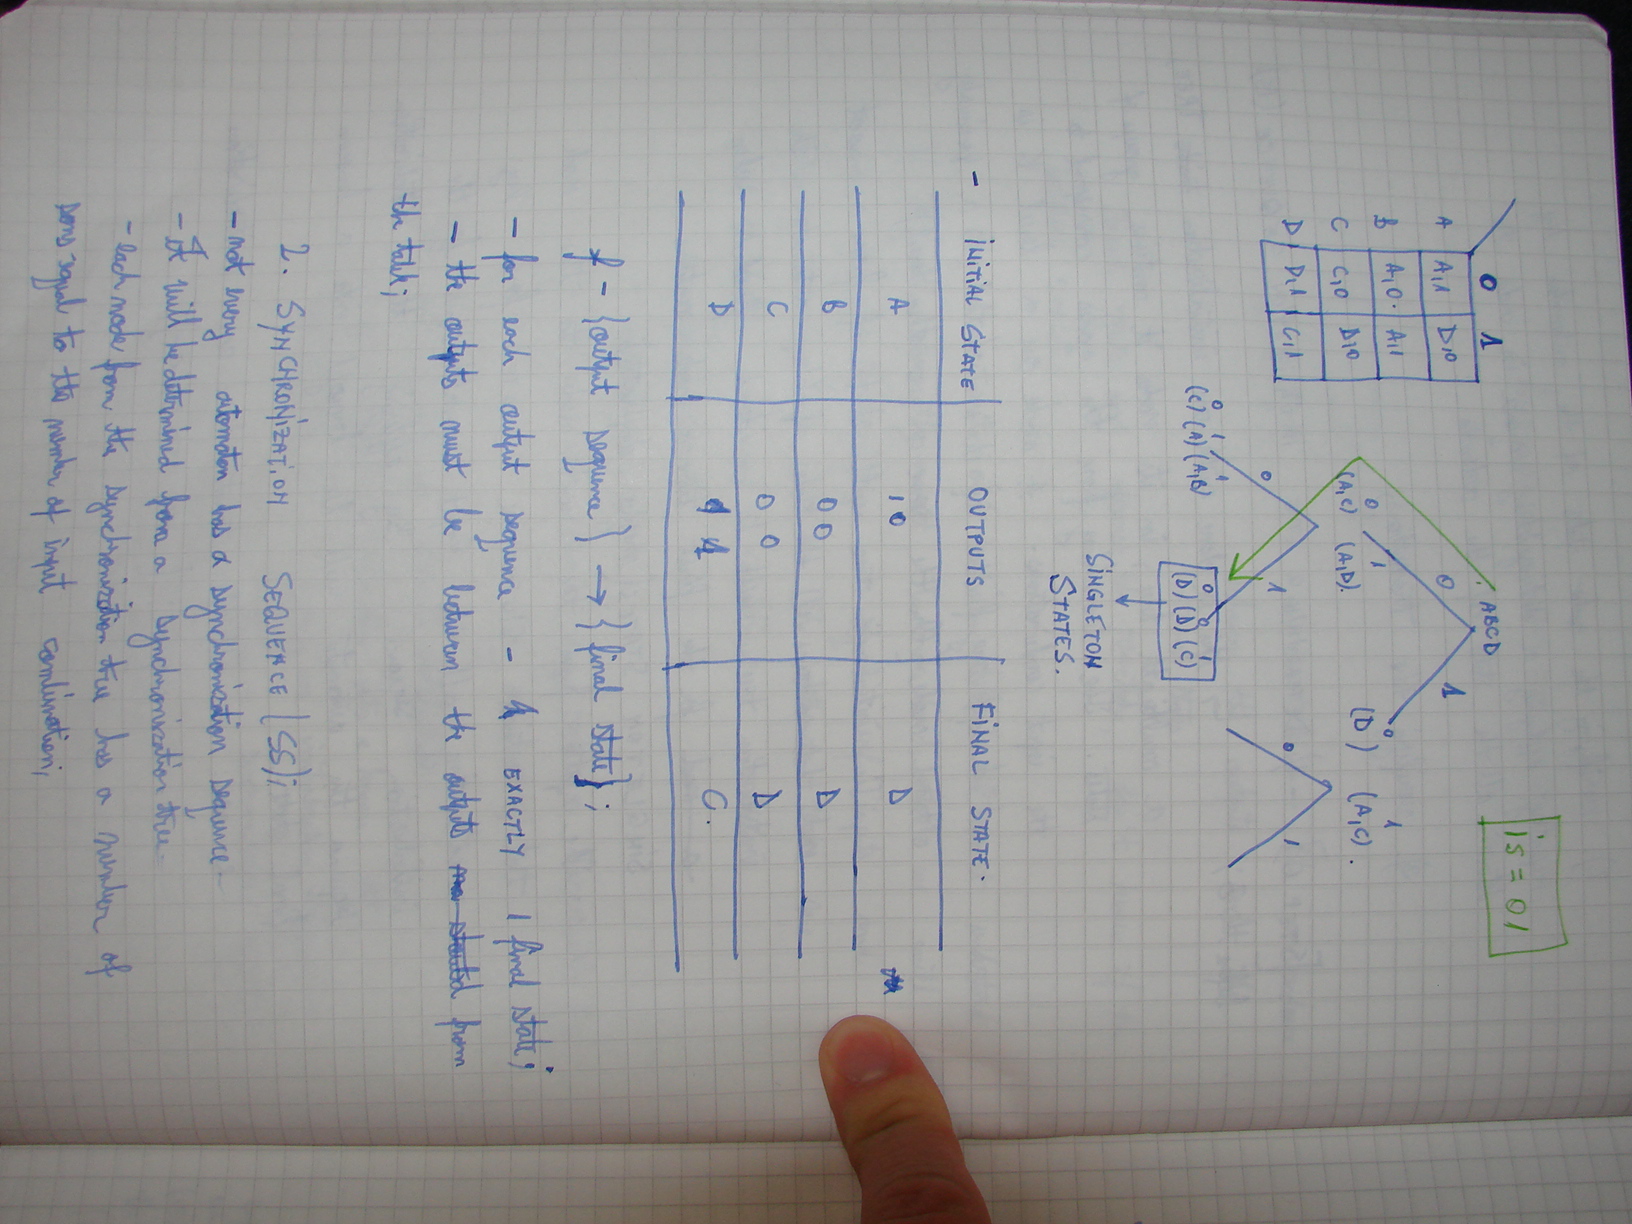 0 1
A A,1 D,0
B A,0. A,1
C C,0 D,0
D D,1 C,1
is = 01
ABCD
0 1
0 1
(A,C) (A,D).
0 1
(D) (A,C).
0 1
0 1
0 1 1
(C) (A) (A,B)
0 0 1
(D) (D) (C)
SINGLETON
STATES.
- INITIAL STATE OUTPUTS FINAL STATE.
A 10 D
B 00 D
C 00 D
D 11 C.
f - {output sequence} → {final state};
- for each output sequence - EXACTLY 1 final state;
- the outputs must be between the outputs from
the table;
2. SYNCHRONIZATION SEQUENCE (SS);
- not every automaton has a synchronization sequence.
- it will be determined from a synchronization tree.
- each node from the synchronization tree has a number of
sons equal to the number of input combination;